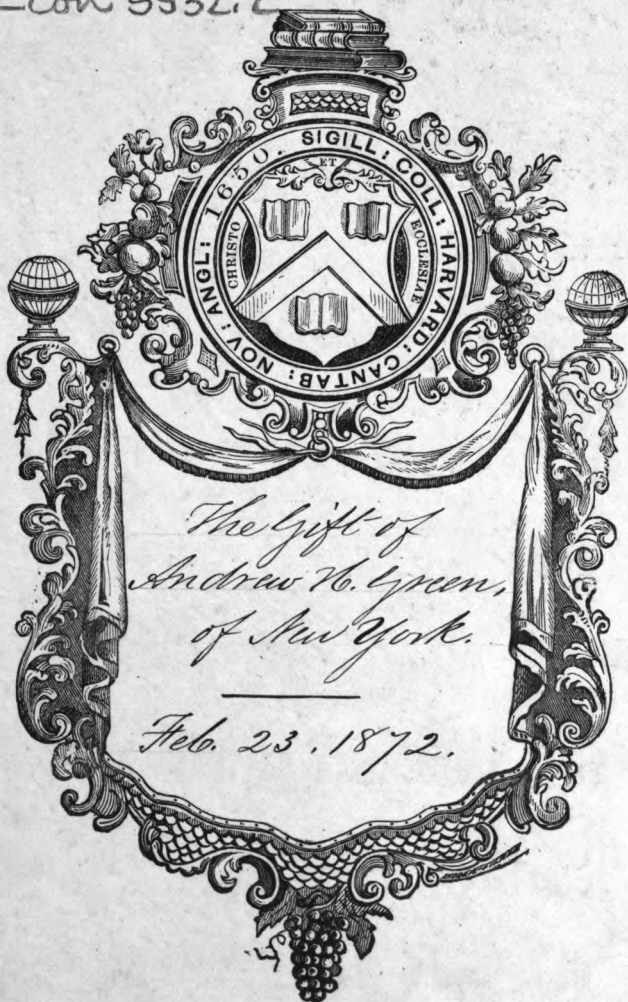 Econ 5932.2
SIGILL: COLL: HARVARD: CANTAB: NOV: ANGL: 1650.
ET
CHRISTO
ECCLESIAE
The Gift of
Andrew H. Green,
of New York.
Feb. 23. 1872.